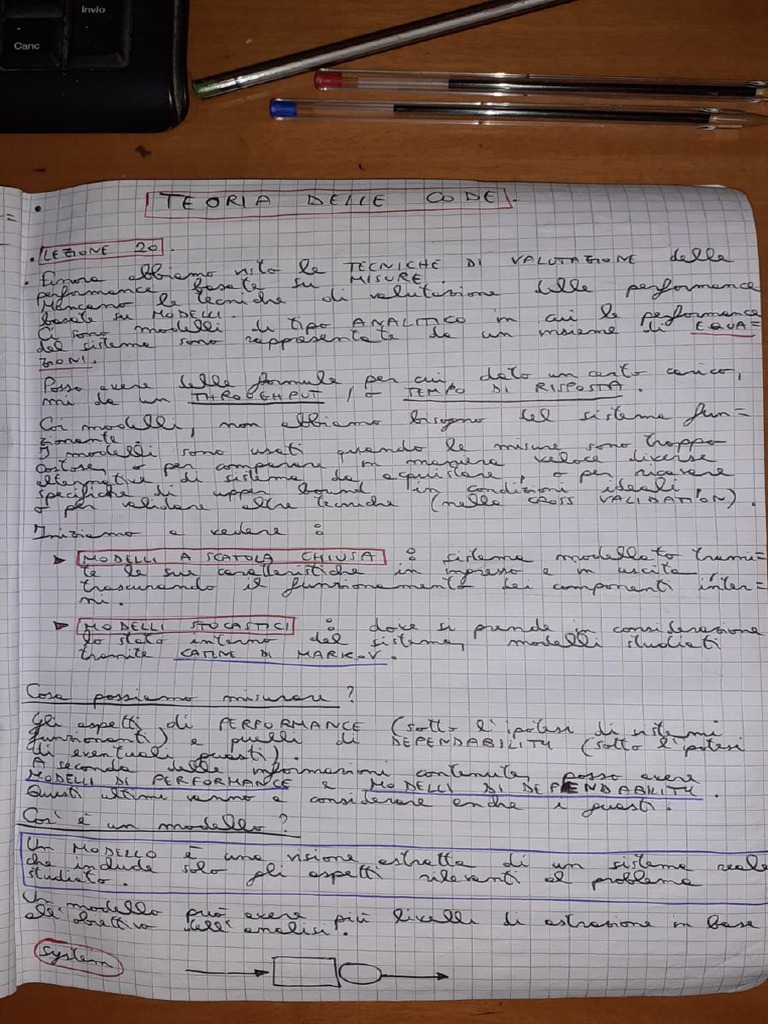 Invio
Canc
TEORIA DELLE CODE.
LEZIONE 20.
Finora abbiamo visto le TECNICHE DI VALUTAZIONE delle
performance basate su MISURE.
Mancano le tecniche di valutazione delle performance
basate su MODELLI.
Ci sono modelli di tipo ANALITICO in cui le performance
del sistema sono rappresentate da un insieme di EQUA=
ZIONI.
Posso avere delle formule per cui, dato un certo carico,
mi da un THROUGHPUT, o TEMPO DI RISPOSTA.
Coi modelli, non abbiamo bisogno del sistema fun=
zionante.
I modelli sono usati quando le misure sono troppo
costose, o per comparare in maniera veloce diverse
alternative di sistema da acquistare, o per ricavare
specifiche di upper bound in condizioni ideali
o per validare altre tecniche (nelle CROSS VALIDATION).
Iniziamo a vedere :
➤ MODELLI A SCATOLA CHIUSA : sistema modellato trami=
te le sue caratteristiche in ingresso e in uscita,
trascurando il funzionamento dei componenti inter=
ni.
➤ MODELLI STOCASTICI : dove si prende in considerazione
lo stato interno del sistema, modelli studiati
tramite CATENE DI MARKOV.
Cosa possiamo misurare?
Gli aspetti di PERFORMANCE (sotto l'ipotesi di sistemi
funzionanti) e quelli di DEPENDABILITY (sotto l'ipotesi
di eventuali guasti).
A seconda delle informazioni contenute, posso avere
MODELLI DI PERFORMANCE e MODELLI DI DEPENDABILITY.
Questi ultimi vanno a considerare anche i guasti.
Cos'è un modello?
Un MODELLO è una visione astratta di un sistema reale
che include solo gli aspetti rilevanti al problema
studiato.
Un modello può avere più livelli di astrazione in base
all'obiettivo dell'analisi.
System